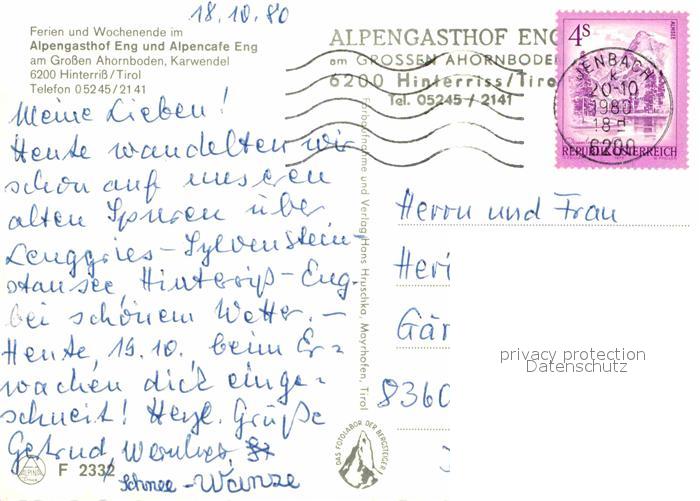 18.10.80
Ferien und Wochenende im
Alpengasthof Eng und Alpencafe Eng
am Großen Ahornboden, Karwendel
6200 Hinterriß/Tirol
Telefon 05245/2141
ALPENGASTHOF ENG
am GROSSEN AHORNBODE
6200 Hinterriss/Tiro
Tel. 05245 / 2141
4S
ALMSEE
REPUBLIK ÖSTERREICH
JENBACH
k
20-10
1980
18
6200
Meine Lieben!
Heute wandelten wir
schon auf unseren
alten Spuren über
Lenggries - Sylvenstein-
stausee, Hinteriß - Eng.
bei schönem Wetter. -
Heute, 19.10. beim Er-
wachen dick einge-
schneit! Herzl. Grüße
Gertrud, Werner,
Schnee - Wanze
F 2332
Farbaufnahme und Verlag Hans Hruschka, Mayrhofen, Tirol
DAS FOTOLABOR DER BERGSTEIGER
Herrn und Frau
Heri
Gär
8360
privacy protection
Datenschutz